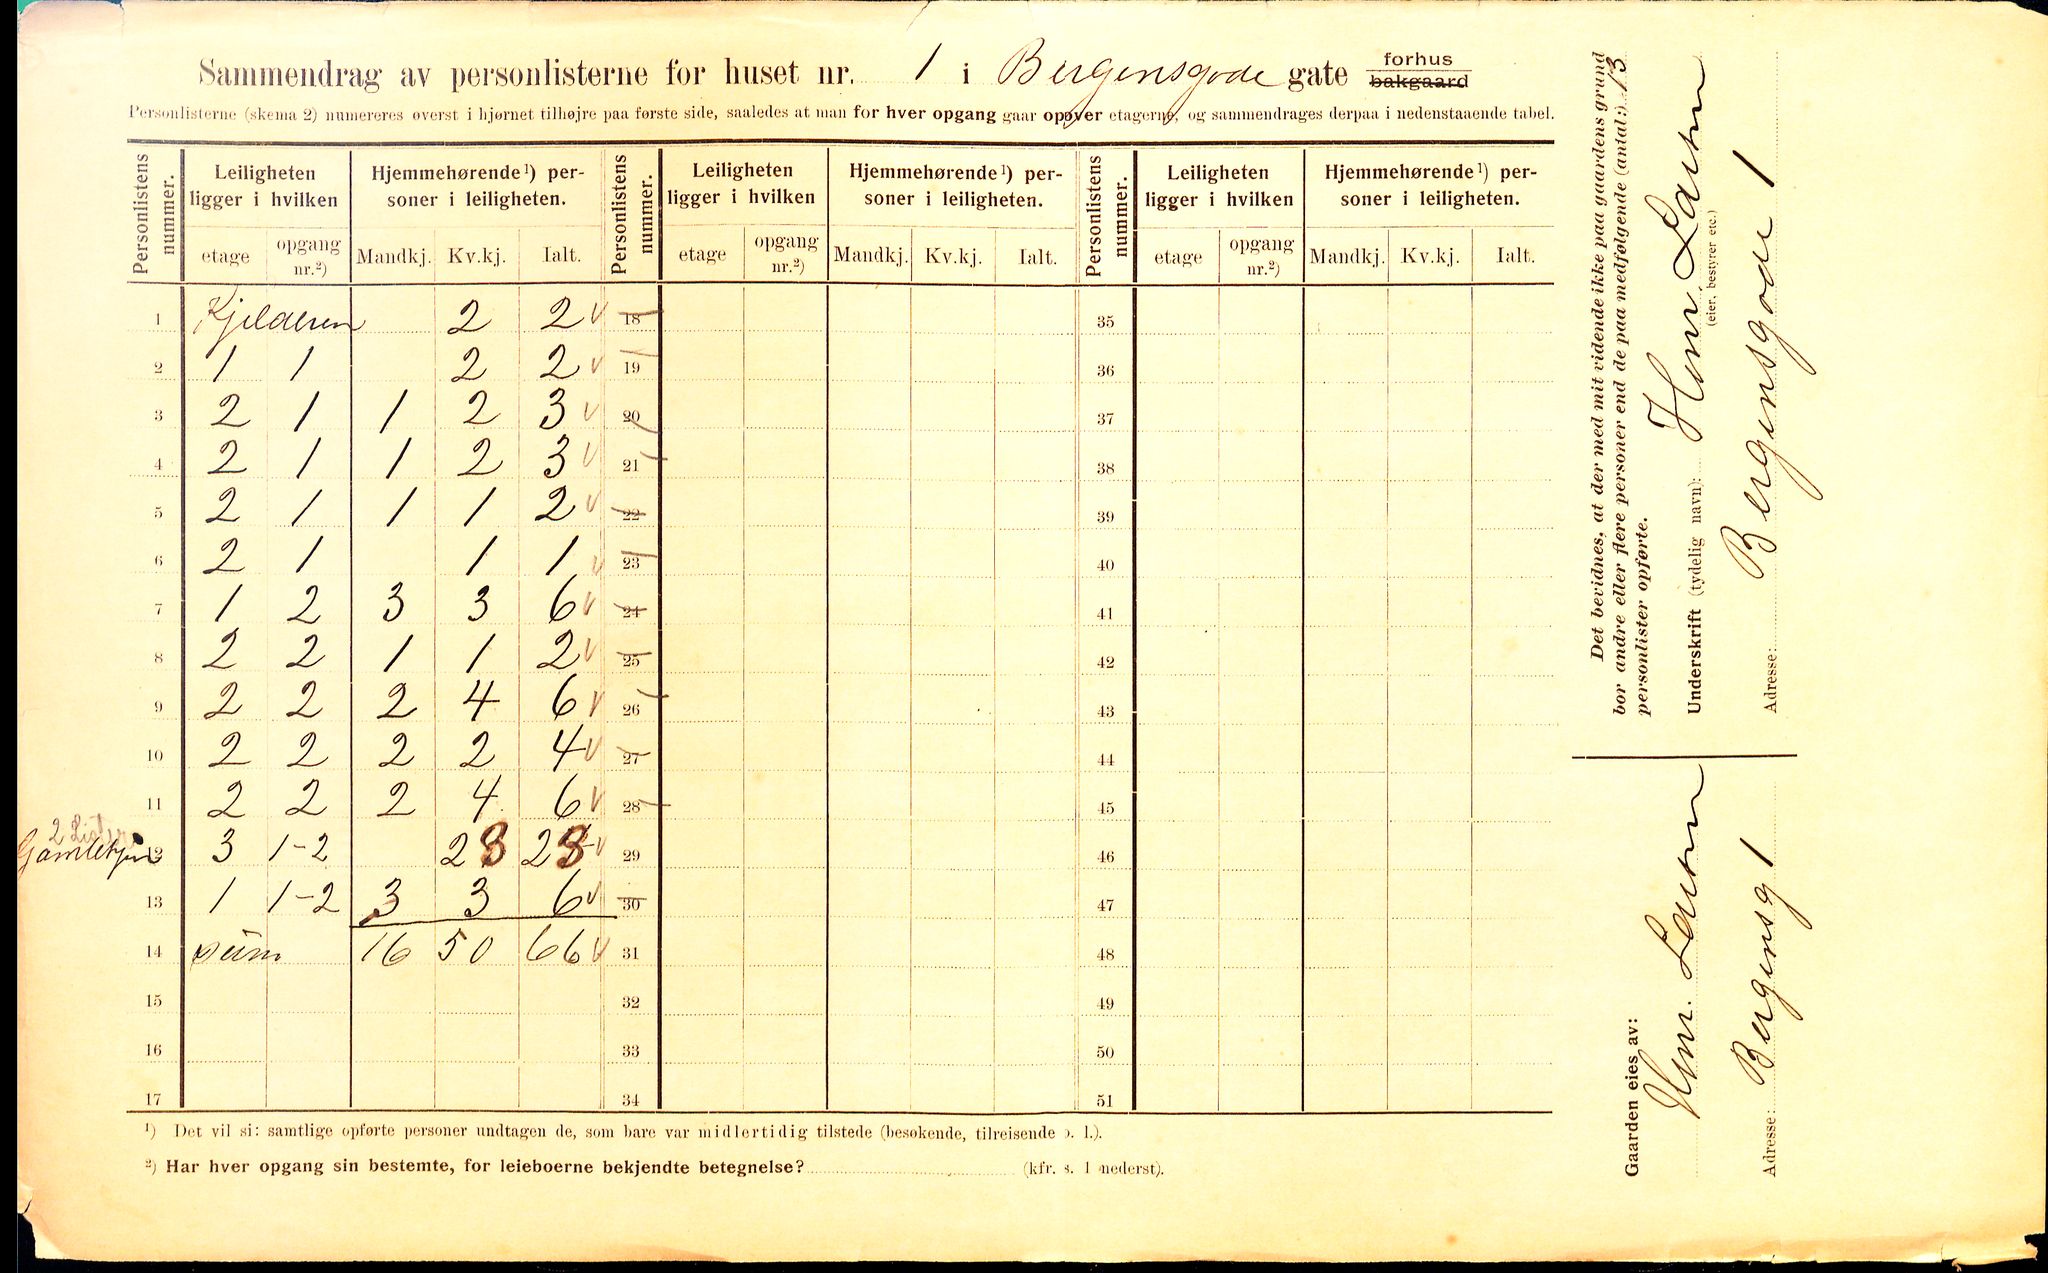 Sammendrag av personlisterne for huset nr. 1 i Bergensgode gate forhus bakgaard
Personlisterne (skema 2) numereres øverst i hjørnet tilhøjre paa første side, saaledes at man for hver opgang gaar opover etagerne, og sammendrages derpaa i nedenstaaende tabel.
Personlistens nummer. Leiligheten ligger i hvilken Hjemmehørende¹) personer i leiligheten. Personlistens nummer. Leiligheten ligger i hvilken Hjemmehørende¹) personer i leiligheten. Personlistens nummer. Leiligheten ligger i hvilken Hjemmehørende¹) personer i leiligheten.
etage opgang nr.²) Mandkj. Kv.kj. Ialt. etage opgang nr.²) Mandkj. Kv.kj. Ialt. etage opgang nr.²) Mandkj. Kv.kj. Ialt.
1 Kjelderen 2 2 18 35
2 1 1 2 2 19 36
3 2 1 1 2 3 20 37
4 2 1 1 2 3 21 38
5 2 1 1 1 2 22 39
6 2 1 1 1 23 40
7 1 2 3 3 6 24 41
8 2 2 1 1 2 25 42
9 2 2 2 4 6 26 43
10 2 2 2 2 4 27 44
11 2 2 2 4 6 28 45
2 Lister
Gamlehjem 12 3 1-2 23 23 29 46
13 1 1-2 3 3 6 30 47
14 sum 16 50 66 31 48
15 32 49
16 33 50
17 34 51
¹) Det vil si: samtlige opførte personer undtagen de, som bare var midlertidig tilstede (besøkende, tilreisende o. l.).
²) Har hver opgang sin bestemte, for leieboerne bekjendte betegnelse? (kfr. s. 1 nederst).
Det bevidnes, at der med mit vidende ikke paa gaardens grund
bor andre eller flere personer end de paa medfølgende (antal:) 13
personlister opførte.
Underskrift (tydelig navn):
(eier, bestyrer etc.)
Adresse: Bergensgode 1
Gaarden eies av:
Adresse: Bergensg 1